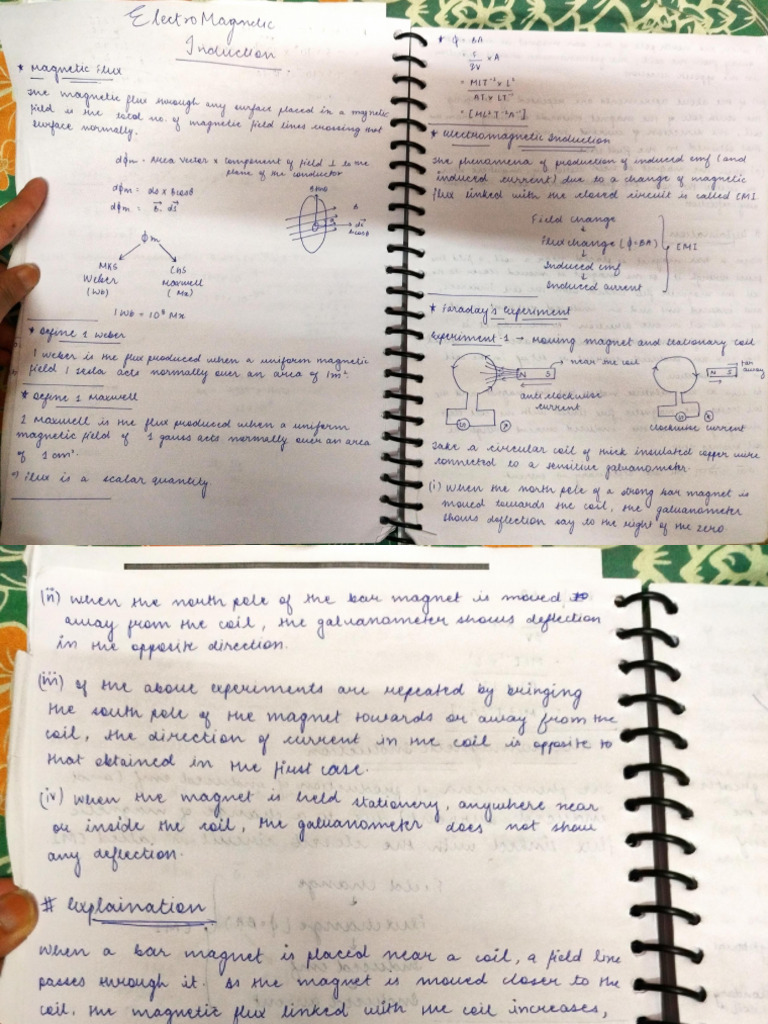 ElectroMagnetic
Induction
* Magnetic Flux
The magnetic flux through any surface placed in a magnetic
field is the total no. of magnetic field lines crossing that
surface normally.
dϕm = Area vector × component of field ⊥ to the
plane of the conductor
dϕm = ds × Bcosθ
dϕm = B⃗. ds⃗
B
ds⃗
Bcosθ
ϕm
MKS
Weber
(Wb)
CGS
Maxwell
(Mx)
1 Wb = 10⁸ Mx
* Define 1 Weber
1 weber is the flux produced when a uniform magnetic
field 1 tesla acts normally over an area of 1m².
* Define 1 Maxwell
1 Maxwell is the flux produced when a uniform
magnetic field of 1 gauss acts normally over an area
of 1 cm².
Flux is a scalar quantity
* ϕ = BA
= F/qv × A
= MLT⁻² × L²
AT × LT⁻¹
= [ML²T⁻²A⁻¹]
* Electromagnetic Induction
The phenomena of production of induced emf (and
induced current) due to a change of magnetic
flux linked with the closed circuit is called EMI
Field change
↓
Flux change (ϕ=BA)
↓
Induced emf
↓
Induced current
EMI
* Faraday's Experiment
Experiment-1 → moving magnet and stationary coil
near the coil
N S
anti clockwise
current
G
N S
far
away
G
clockwise current
Take a circular coil of thick insulated copper wire
connected to a sensitive galvanometer.
(i) When the north pole of a strong bar magnet is
moved towards the coil, the galvanometer
shows deflection say to the right of the zero.
(ii) When the north pole of the bar magnet is moved
away from the coil, the galvanometer shows deflection
in the opposite direction.
(iii) If the above experiments are repeated by bringing
the south pole of the magnet towards or away from the
coil, the direction of current in the coil is opposite to
that obtained in the first case.
(iv) When the magnet is held stationery, anywhere near
or inside the coil, the galvanometer does not show
any deflection.
# Explaination
When a bar magnet is placed near a coil, a field line
passes through it. As the magnet is moved closer to the
coil, the magnetic flux linked with the coil increases,